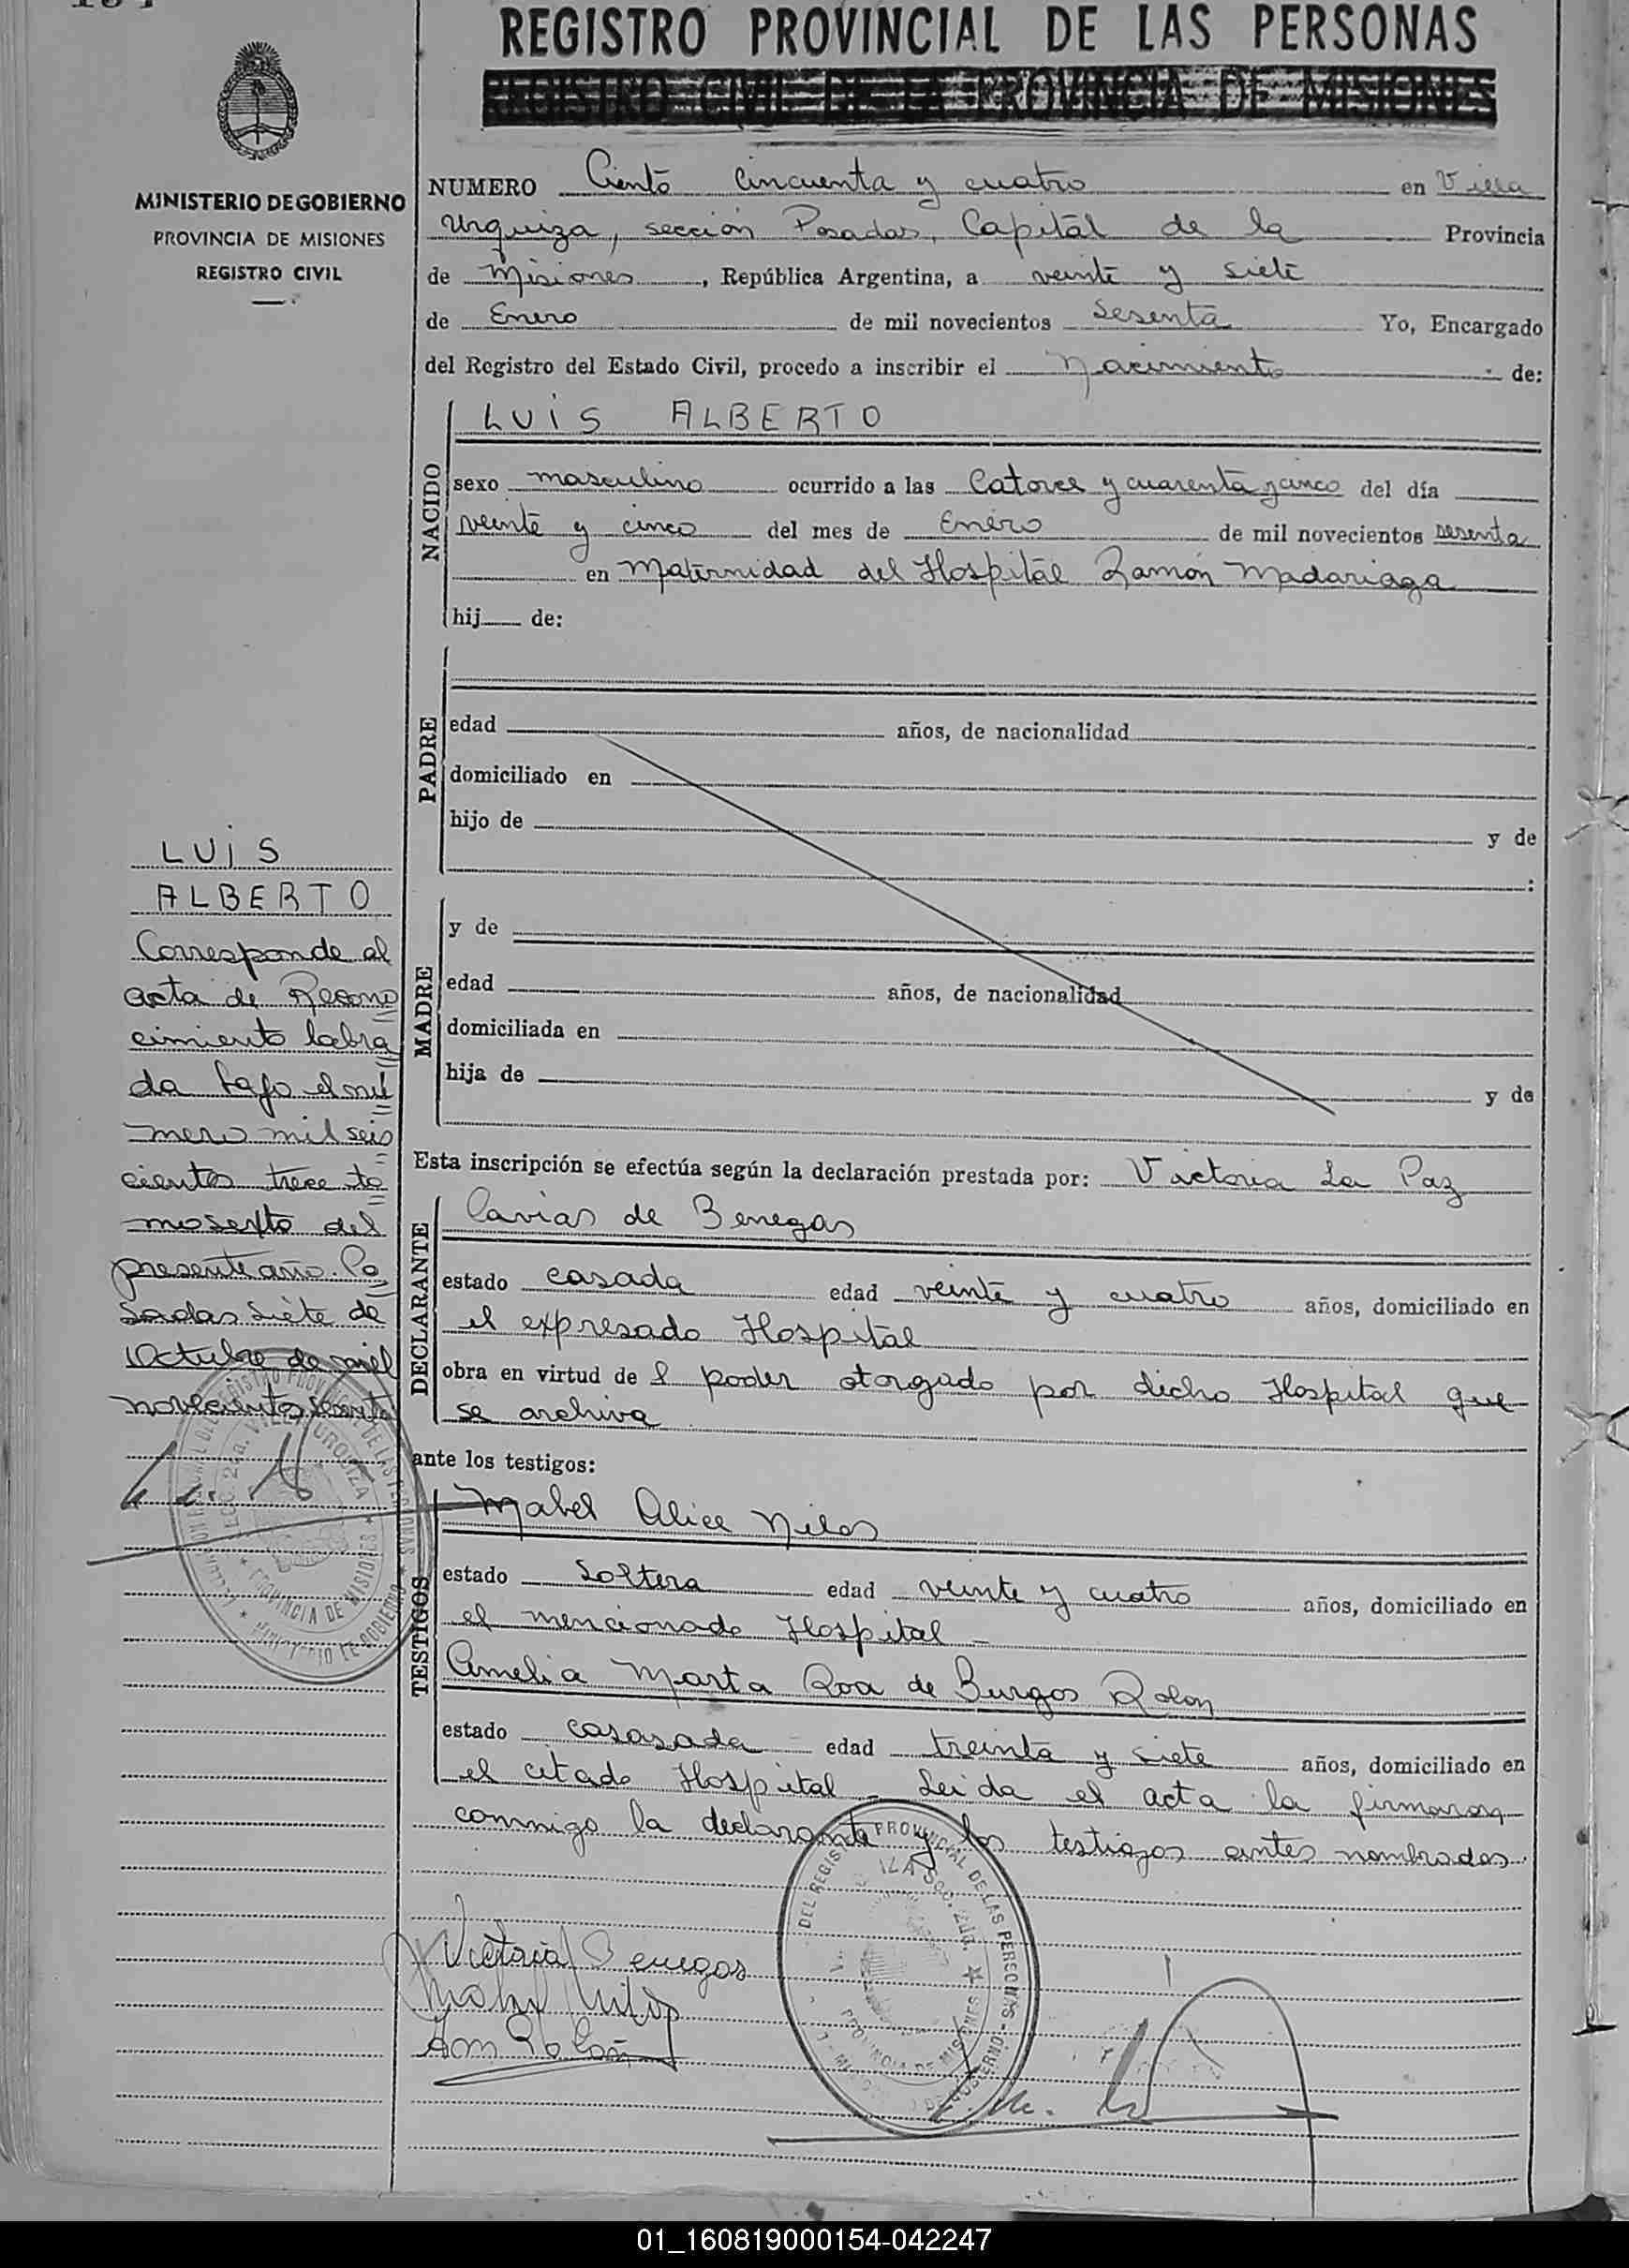 REGISTRO PROVINCIAL DE LAS PERSONAS
REGISTRO CIVIL DE LA PROVINCIA DE MISIONES
MINISTERIO DE GOBIERNO
PROVINCIA DE MISIONES
REGISTRO CIVIL
NUMERO Ciento Cincuenta y cuatro en Villa
Urquiza, sección Posadas, Capital de la Provincia
de Misiones, República Argentina, a veinte y siete
de Enero de mil novecientos Sesenta Yo, Encargado
del Registro del Estado Civil, procedo a inscribir el Nacimiento de:
NACIDO
LUIS ALBERTO
sexo masculino ocurrido a las Catorce y cuarenta y cinco del día
veinte y cinco del mes de Enero de mil novecientos sesenta
en Maternidad del Hospital Ramón Madariaga
hij de:
PADRE
edad años, de nacionalidad
domiciliado en
hijo de y de
:
MADRE
y de
edad años, de nacionalidad
domiciliada en
hija de y de
Esta inscripción se efectúa según la declaración prestada por: Victoria La Paz
DECLARANTE
Cavias de Benegas
estado casada edad veinte y cuatro años, domiciliado en
el expresado Hospital
obra en virtud de l poder otorgado por dicho Hospital que
se archiva
ante los testigos:
TESTIGOS
Mabel Alice Nilos
estado Soltera edad veinte y cuatro años, domiciliado en
el mencionado Hospital -
Amelia Marta Roa de Burgos Rolon
estado casasada edad treinta y siete años, domiciliado en
el citado Hospital - Leida el acta la firmaron
conmigo la declarante y los testigos antes nombrados.
Victoria Benegas
LUIS
ALBERTO
Corresponde al
acta de Recono
cimiento labra
da bajo el nú
mero mil seis
cientos trece to
mo sexto del
presente año. Po
sadas Siete de
Octubre de mil
novecientos sesenta
DEL REGISTRO PROVINCIAL DE LAS PERSONAS
PROVINCIA DE MISIONES
01_160819000154-042247